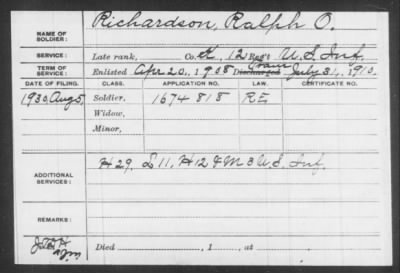 NAME OF SOLDIER: Richardson, Ralph O.
SERVICE: Late rank, Co. K, 12 Reg't U.S. Inf.
TERM OF SERVICE: Enlisted Apr 20, 1908 Discharged July 31, 1910.
DATE OF FILING. CLASS. APPLICATION NO. LAW. CERTIFICATE NO.
1930, Aug 5 Soldier, 1674818 RE
Widow,
Minor,
ADDITIONAL SERVICES: H 29. L 11, H 12 & M 3 U.S. Inf.
REMARKS:
Died , 1 , at